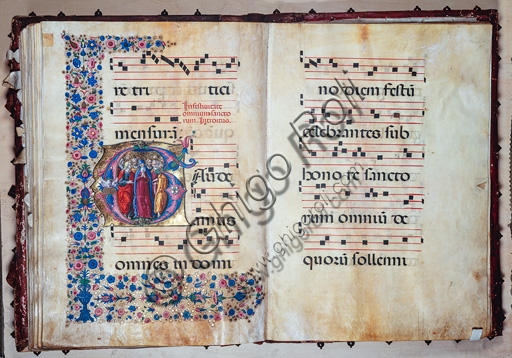 re tri tici
In festivitate
omnium sancto
rum. Introitus.
mensurā.
Aude
amus
omnes in domi
no diem festū
celebrantes sub
hono re sancto
rum omniū de
quorū sollemni
www.ghigoroli.com
© Ghigo Roli